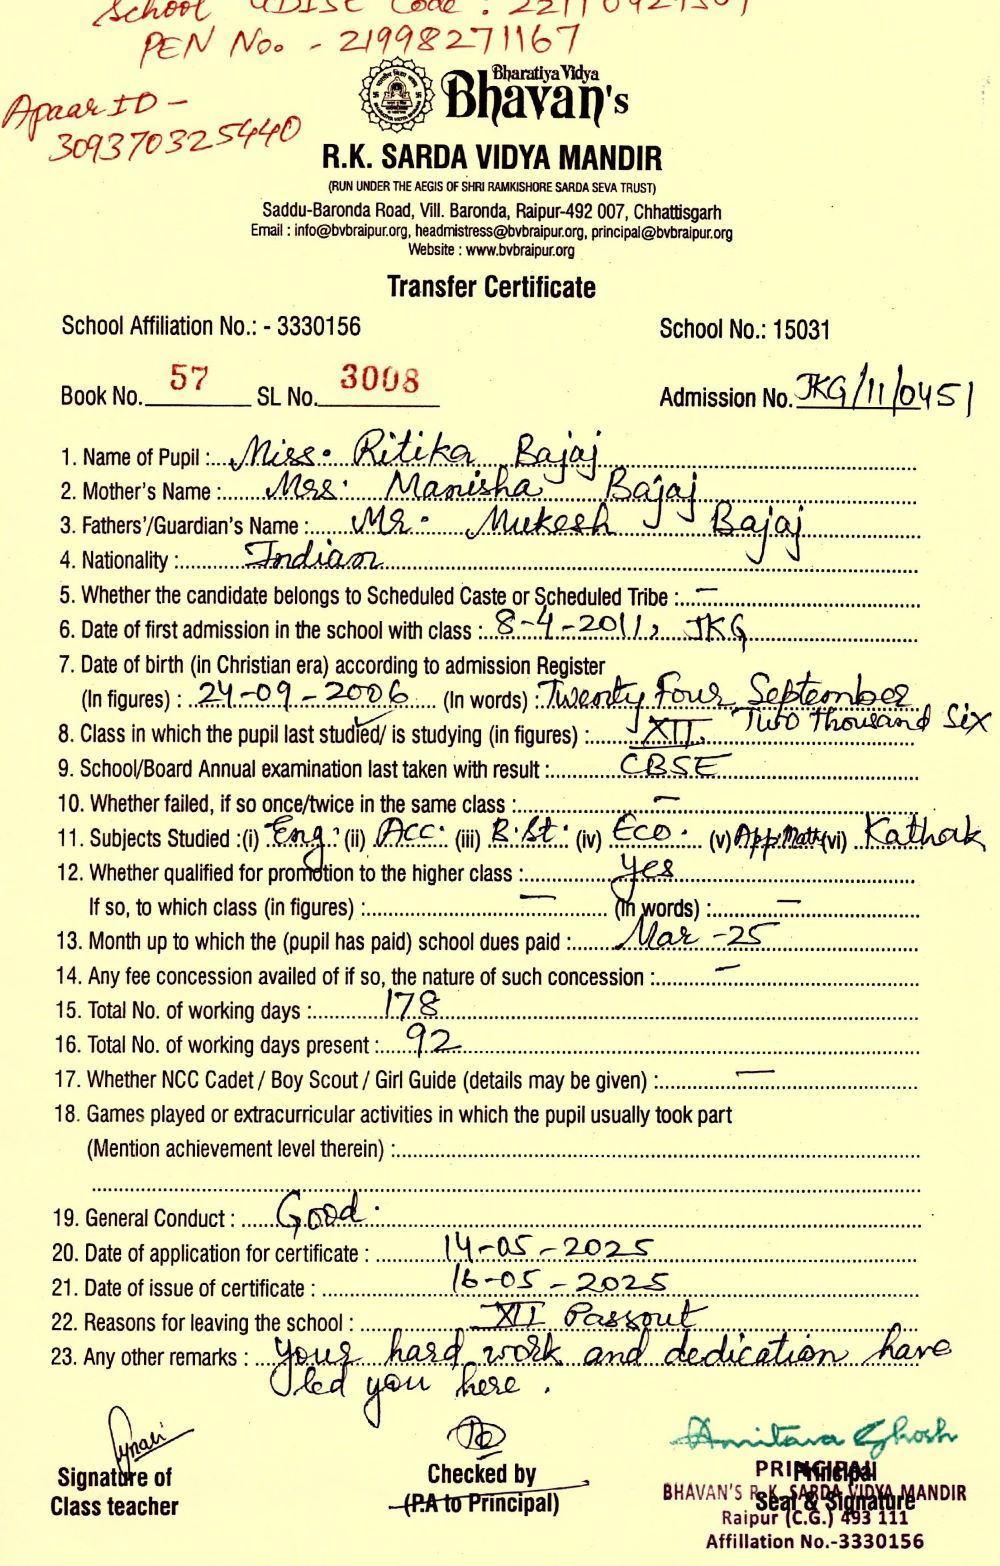 School UDISE Code :
PEN No. - 21998271167
Apaar ID -
309370325440
Bharatiya Vidya
Bhavan's
R.K. SARDA VIDYA MANDIR
(RUN UNDER THE AEGIS OF SHRI RAMKISHORE SARDA SEVA TRUST)
Saddu-Baronda Road, Vill. Baronda, Raipur-492 007, Chhattisgarh
Email : info@bvbraipur.org, headmistress@bvbraipur.org, principal@bvbraipur.org
Website : www.bvbraipur.org
Transfer Certificate
School Affiliation No.: - 3330156 School No.: 15031
Book No. 57 SL No. 3008 Admission No. JKG/11/0451
1. Name of Pupil : Miss. Ritika Bajaj
2. Mother's Name : Mrs. Manisha Bajaj
3. Fathers'/Guardian's Name : Mr. Mukesh Bajaj
4. Nationality : Indian
5. Whether the candidate belongs to Scheduled Caste or Scheduled Tribe : —
6. Date of first admission in the school with class : 8-4-2011, JKG
7. Date of birth (in Christian era) according to admission Register
(In figures) : 24-09-2006 (In words) : Twenty Four September
Two Thousand Six
8. Class in which the pupil last studied/ is studying (in figures) : XII
9. School/Board Annual examination last taken with result : CBSE
10. Whether failed, if so once/twice in the same class : —
11. Subjects Studied :(i) Eng. (ii) Acc. (iii) B.St. (iv) Eco. (v) App.Math (vi) Kathak
12. Whether qualified for promotion to the higher class : Yes
If so, to which class (in figures) : — (In words) : —
13. Month up to which the (pupil has paid) school dues paid : Mar-25
14. Any fee concession availed of if so, the nature of such concession : —
15. Total No. of working days : 178
16. Total No. of working days present : 92
17. Whether NCC Cadet / Boy Scout / Girl Guide (details may be given) : —
18. Games played or extracurricular activities in which the pupil usually took part
(Mention achievement level therein) :
19. General Conduct : Good.
20. Date of application for certificate : 14-05-2025
21. Date of issue of certificate : 16-05-2025
22. Reasons for leaving the school : XII Passout
23. Any other remarks : Your hard work and dedication have
led you here.
Amitava Ghosh
Signature of
Class teacher
Checked by
(P.A to Principal)
Principal
Seal & Signature
PRINCIPAL
BHAVAN'S R.K. SARDA VIDYA MANDIR
Raipur (C.G.) 493 111
Affiliation No.-3330156